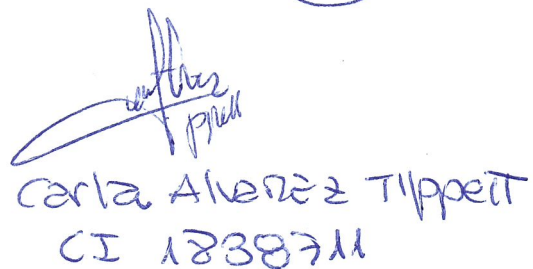 Carla Alvarez Tippett
CI 1838711